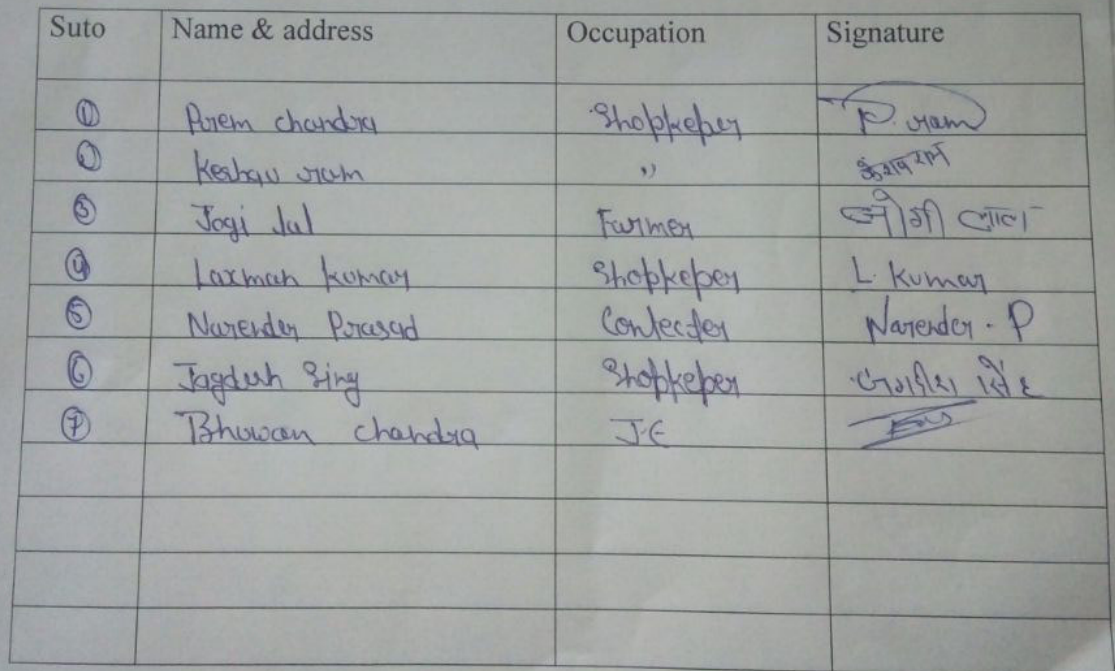 Suto Name & address Occupation Signature
① Prem chandra Shopkeper P. ram
② Keshav ram ,, केशव राम
③ Jogi Lal Farmer जोगी लाल
④ Laxman kumar Shopkeper L. Kumar
⑤ Narender Prasad Contecter Narender. P
⑥ Jagdesh Sing Shopkeper जगदीश सिंह
⑦ Bhuwan chandra J.E